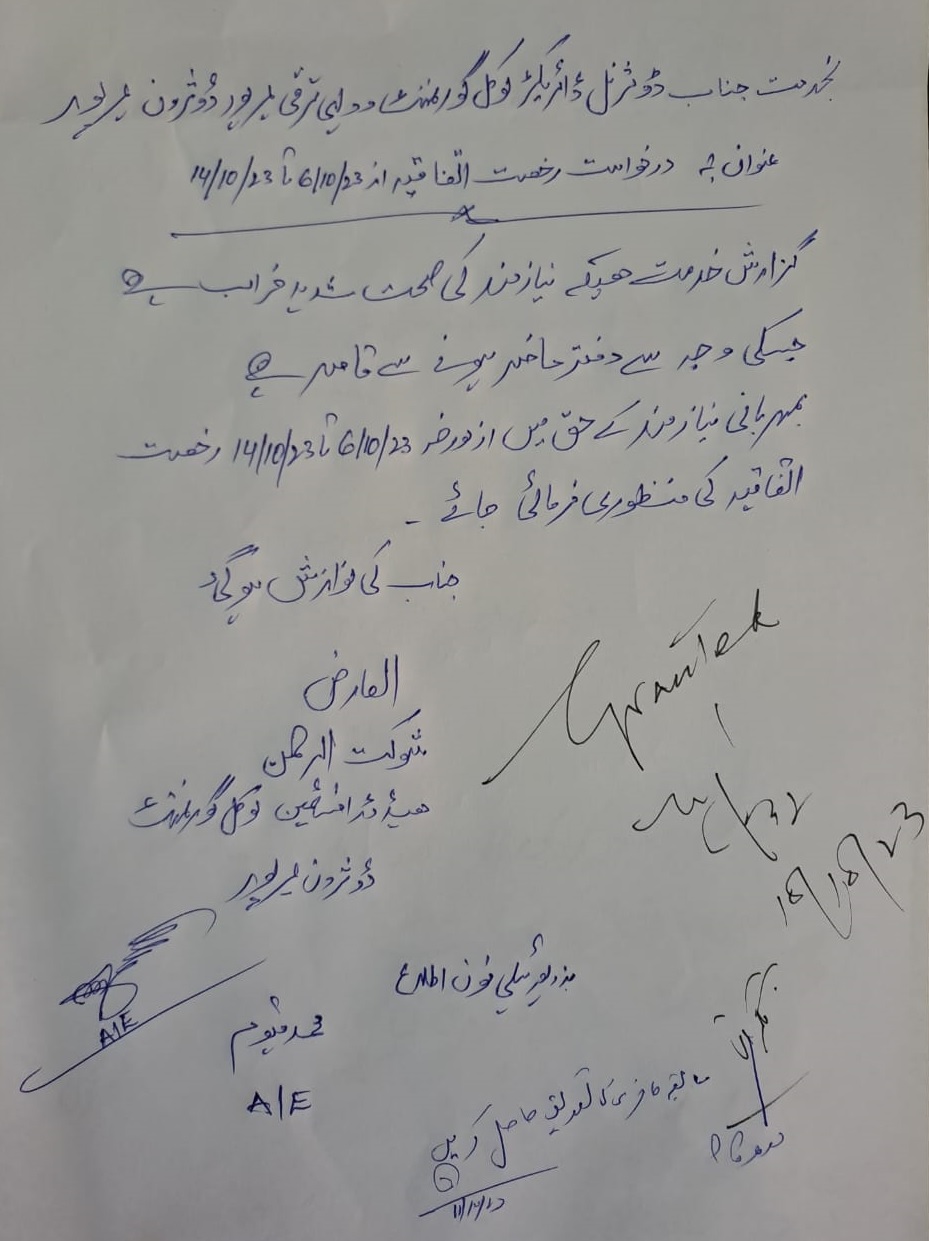 بخدمت جناب ڈویژنل ڈائریکٹر لوکل گورنمنٹ و دیہی ترقی میرپور ڈویژون میرپور
عنوان :۔ درخواست رخصت اتفاقیہ از 6/10/23 تا 14/10/23
گزارش خدمت ھیکہ نیازمند کی صحت شدید خراب ہے
جسکی وجہ سے دفتر حاضر ہونے سے قاصر ہے
بمہربانی نیازمند کے حق میں از مورخہ 6/10/23 تا 14/10/23 رخصت
اتفاقیہ کی منظوری فرمائی جائے ۔
جناب کی نوازش ہوگی
العارض
شوکت الرحمن
ھیڈ ڈرافٹسمین لوکل گورنمنٹ
ڈویژون میرپور
Granted
بذریعہ ٹیلی فون اطلاع
A/E
محمد قیوم
A/E
حاضری کا تصدیق حاصل کریں